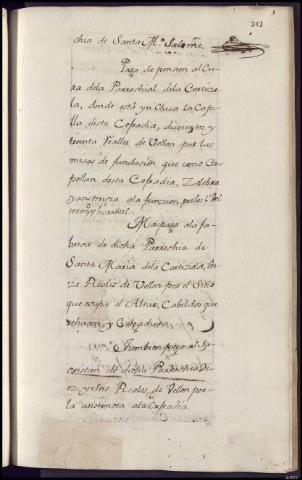 212
chia de Santa Mª. Salome.
Paga de pension al Cu-
ra dela Parrochial dela Cortize-
la, donde està ynclusa la Capi-
lla desta Cofradia, duzientos y
treinta Realles de Vellon por las
misas de fundazion que como Ca-
pellan desta Cofradia, Zelebra
y asistencia ala funzion,
Mas paga ala fa-
brica de dicha Parrochia de
Santa Maria dela Cortizela, on-
ze Reales de Vellon por el Sitio
que ocupa el Altar, Cabildos que
se hazen, y
Tambien paga al Sa-
cristan de dicha Parrochia Di-
ez, y seis Reales, de Vellon por
la asistencia ala Cofradia.